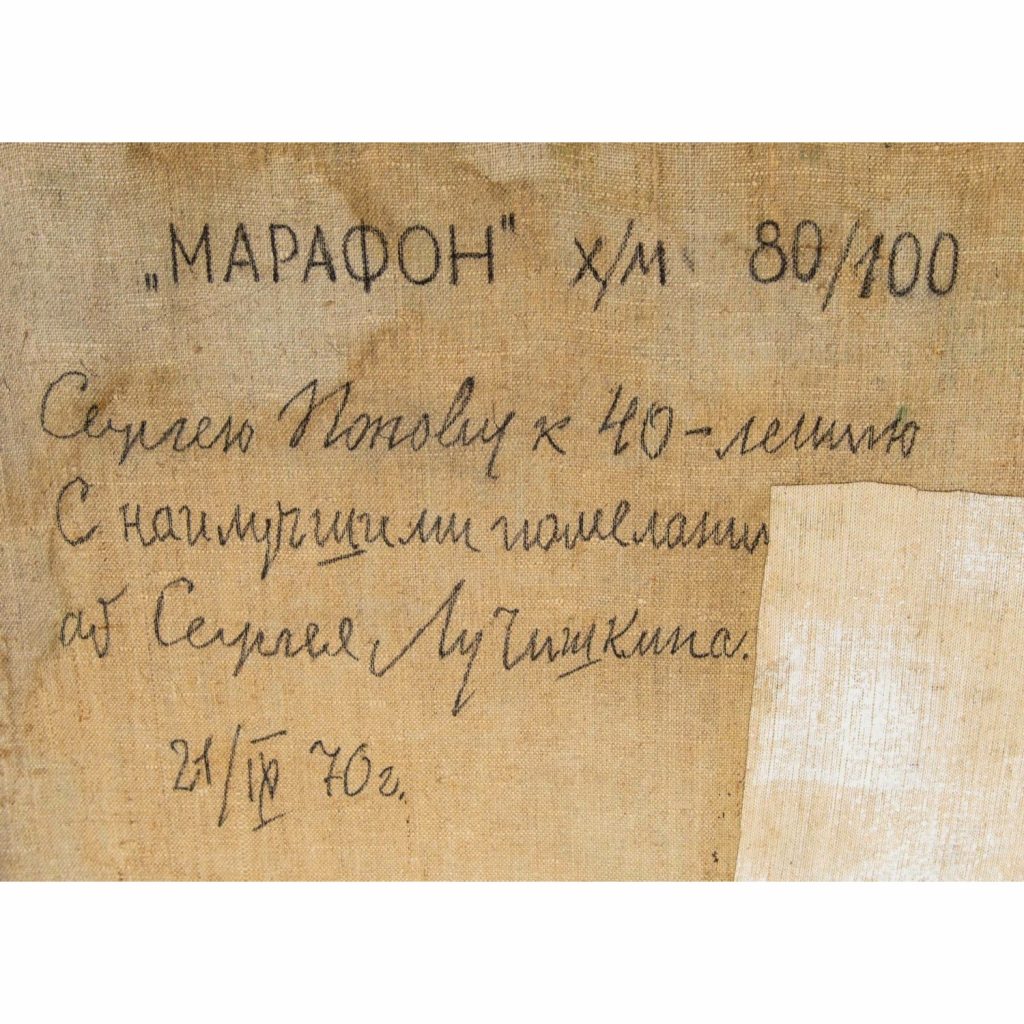 „МАРАФОН" х/м 80/100
Сергею Попову к 40-летию
С наилучшими пожелани
от Сергея Лучишкина.
21/IX 70 г.